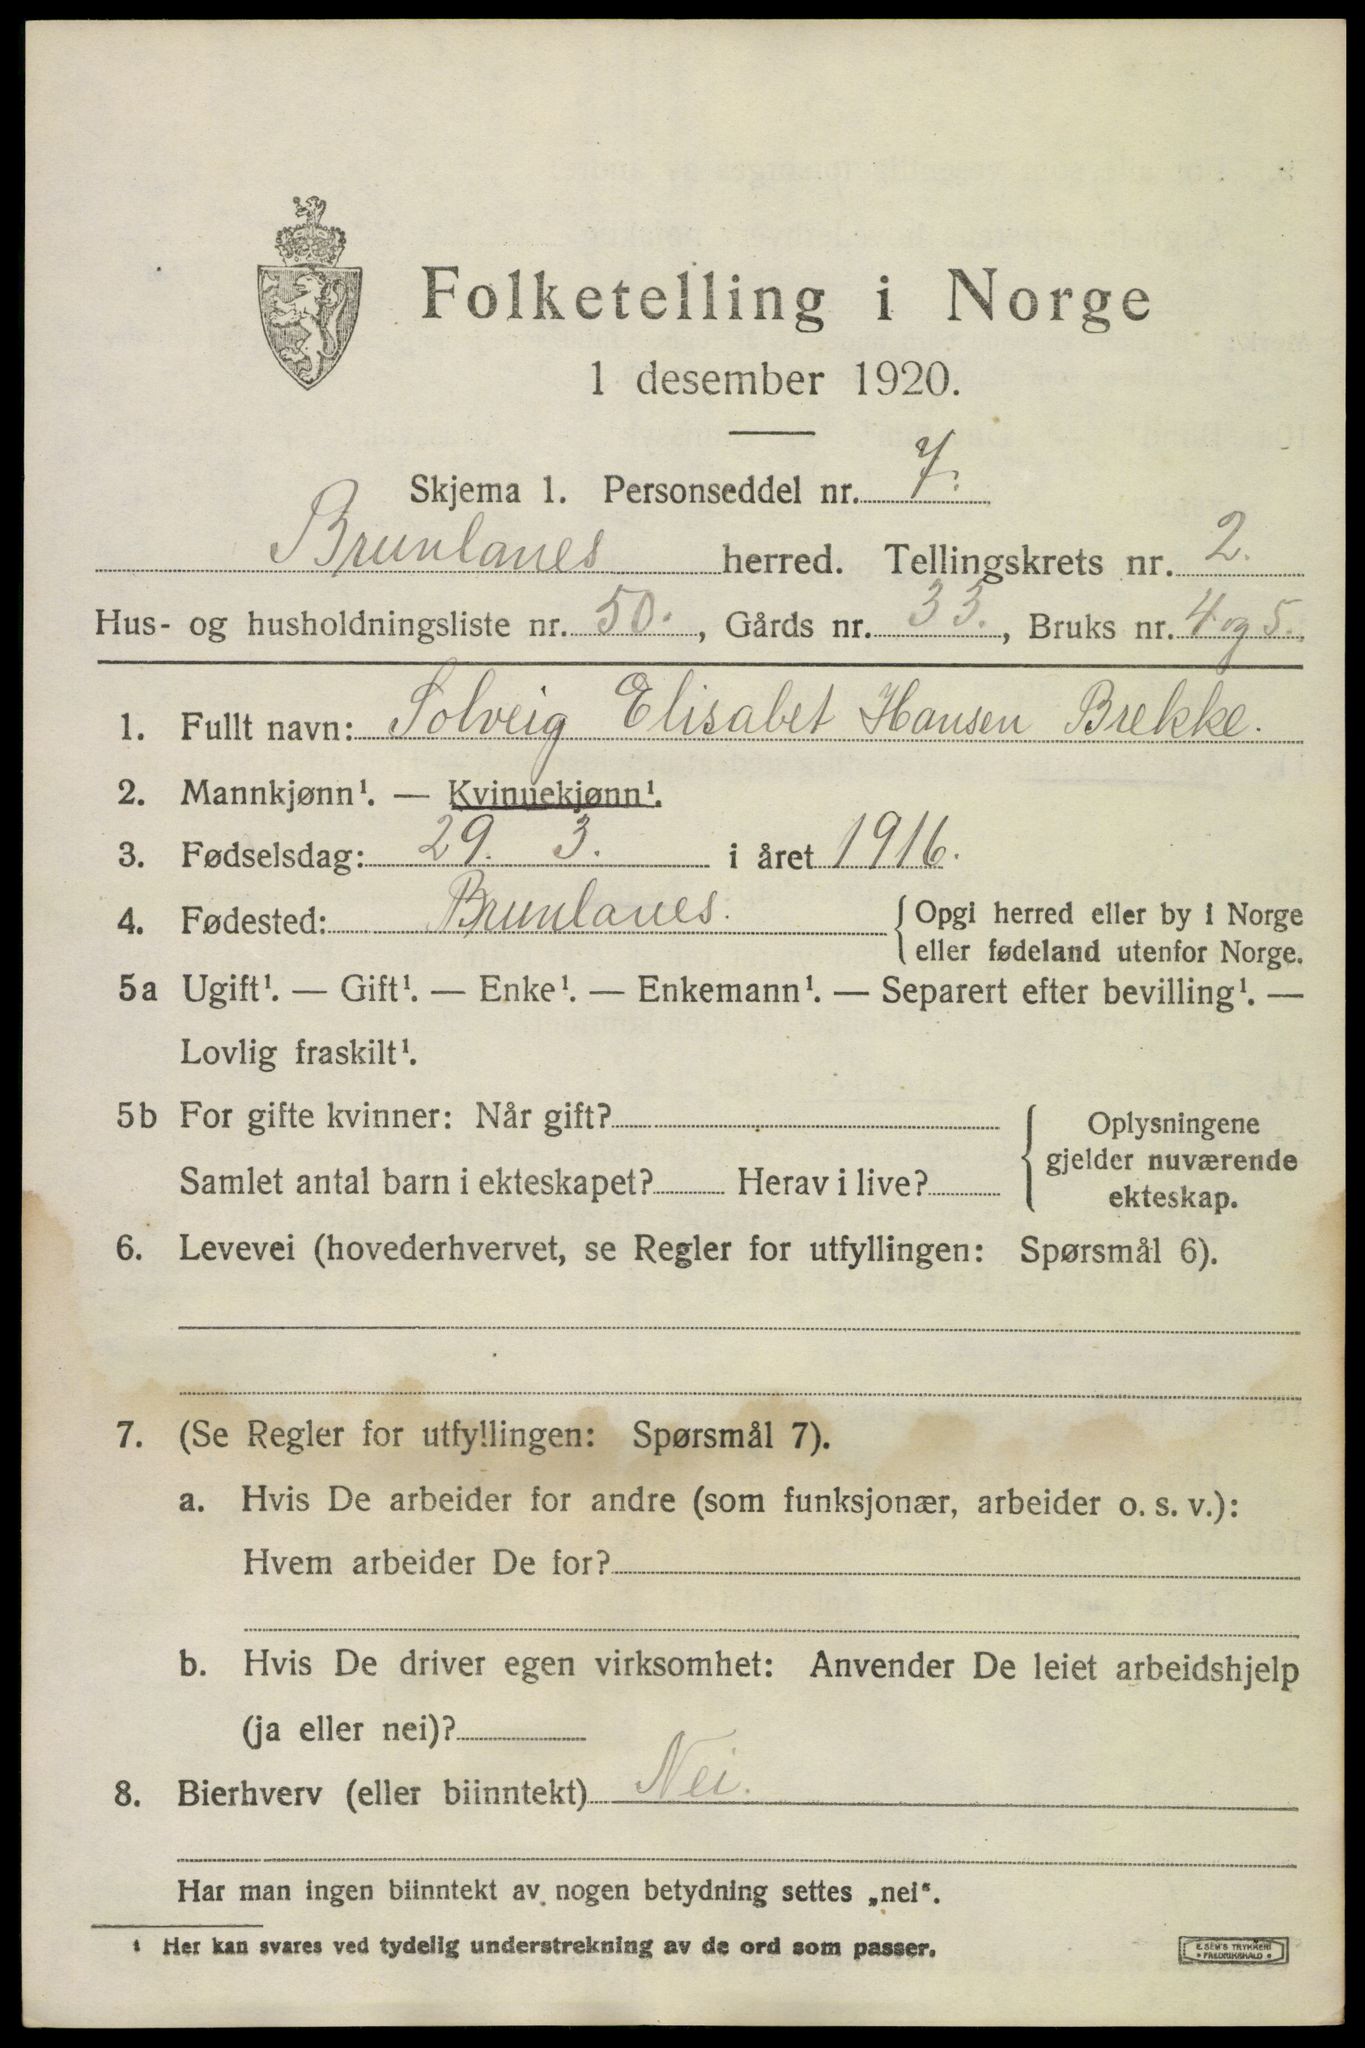 Folketelling i Norge
1 desember 1920.
Skjema 1. Personseddel nr. 7.
Brunlanes herred. Tellingskrets nr. 2.
Hus- og husholdningsliste nr. 50., Gårds nr. 33., Bruks nr. 4 og 5.
1. Fullt navn: Solveig Elisabet Hansen Brekke.
2. Mannkjønn¹. — Kvinnekjønn¹.
3. Fødselsdag: 29. 3. i året 1916.
4. Fødested: Brunlanes. { Opgi herred eller by i Norge
eller fødeland utenfor Norge.
5a Ugift¹. — Gift¹. — Enke¹. — Enkemann¹. — Separert efter bevilling¹. —
Lovlig fraskilt¹.
5b For gifte kvinner: Når gift?
Samlet antal barn i ekteskapet? Herav i live?
{ Oplysningene
gjelder nuværende
ekteskap.
6. Levevei (hovederhvervet, se Regler for utfyllingen: Spørsmål 6).
7. (Se Regler for utfyllingen: Spørsmål 7).
a. Hvis De arbeider for andre (som funksjonær, arbeider o. s. v.):
Hvem arbeider De for?
b. Hvis De driver egen virksomhet: Anvender De leiet arbeidshjelp
(ja eller nei)?
8. Bierhverv (eller biinntekt) Nei.
Har man ingen biinntekt av nogen betydning settes „nei“.
¹ Her kan svares ved tydelig understrekning av de ord som passer.
E. SEM'S TRYKKERI
• FREDRIKSHALD •